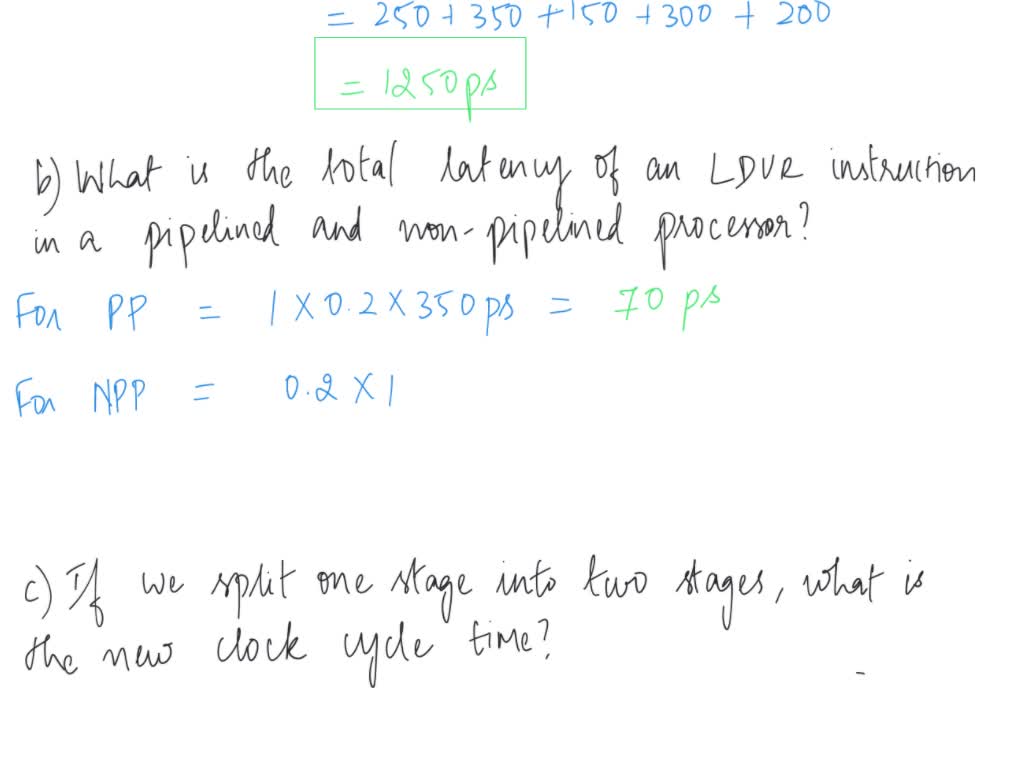 = 250 + 350 + 150 + 300 + 200
= 1250 ps
b) What is the total latency of an LDUR instruction
in a pipelined and non-pipelined processor?
For PP = 1 X 0.2 X 350 ps = 70 ps
For NPP = 0.2 X 1
c) If we split one stage into two stages, what is
the new clock cycle time?